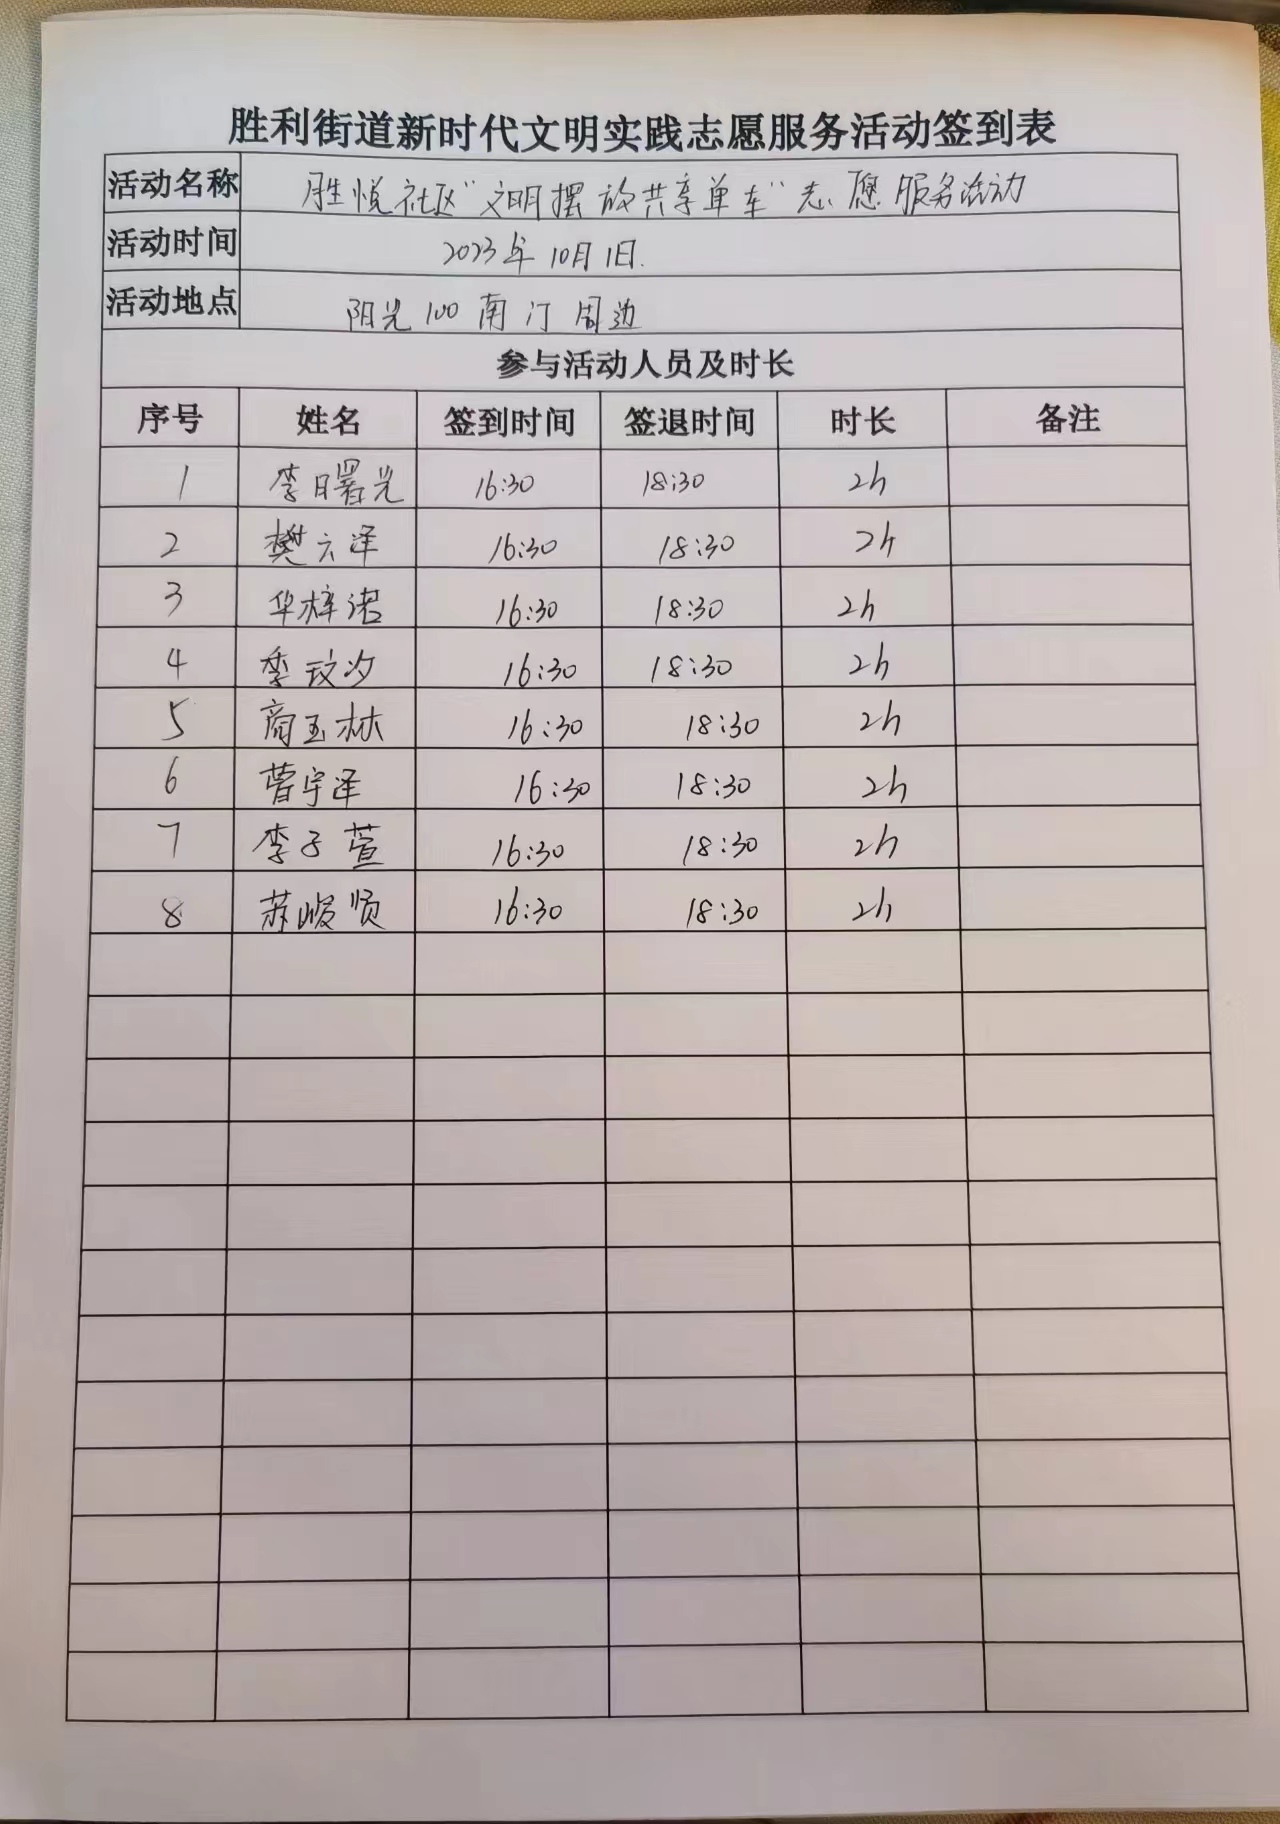 胜利街道新时代文明实践志愿服务活动签到表
活动名称 胜悦社区"文明摆放共享单车"志愿服务活动
活动时间 2023年10月1日.
活动地点 阳光100南门周边
参与活动人员及时长
序号 姓名 签到时间 签退时间 时长 备注
1 李曙光 16:30 18:30 2h
2 樊云泽 16:30 18:30 2h
3 华梓诺 16:30 18:30 2h
4 季玟汐 16:30 18:30 2h
5 商玉林 16:30 18:30 2h
6 曹宇泽 16:30 18:30 2h
7 李子萱 16:30 18:30 2h
8 苏峻贤 16:30 18:30 2h